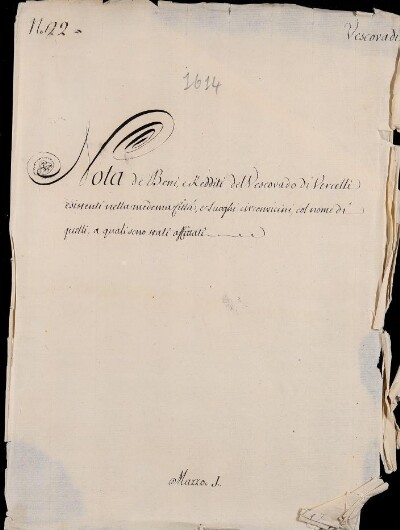 N. 22
Vescovadi
1614
Nota de Beni, e Redditi del Vescovado di Vercelli
esistenti nella medema Città, e Luoghi circonvicini, col nome di
quelli, a quali sono stati affittati
Mazzo 1.